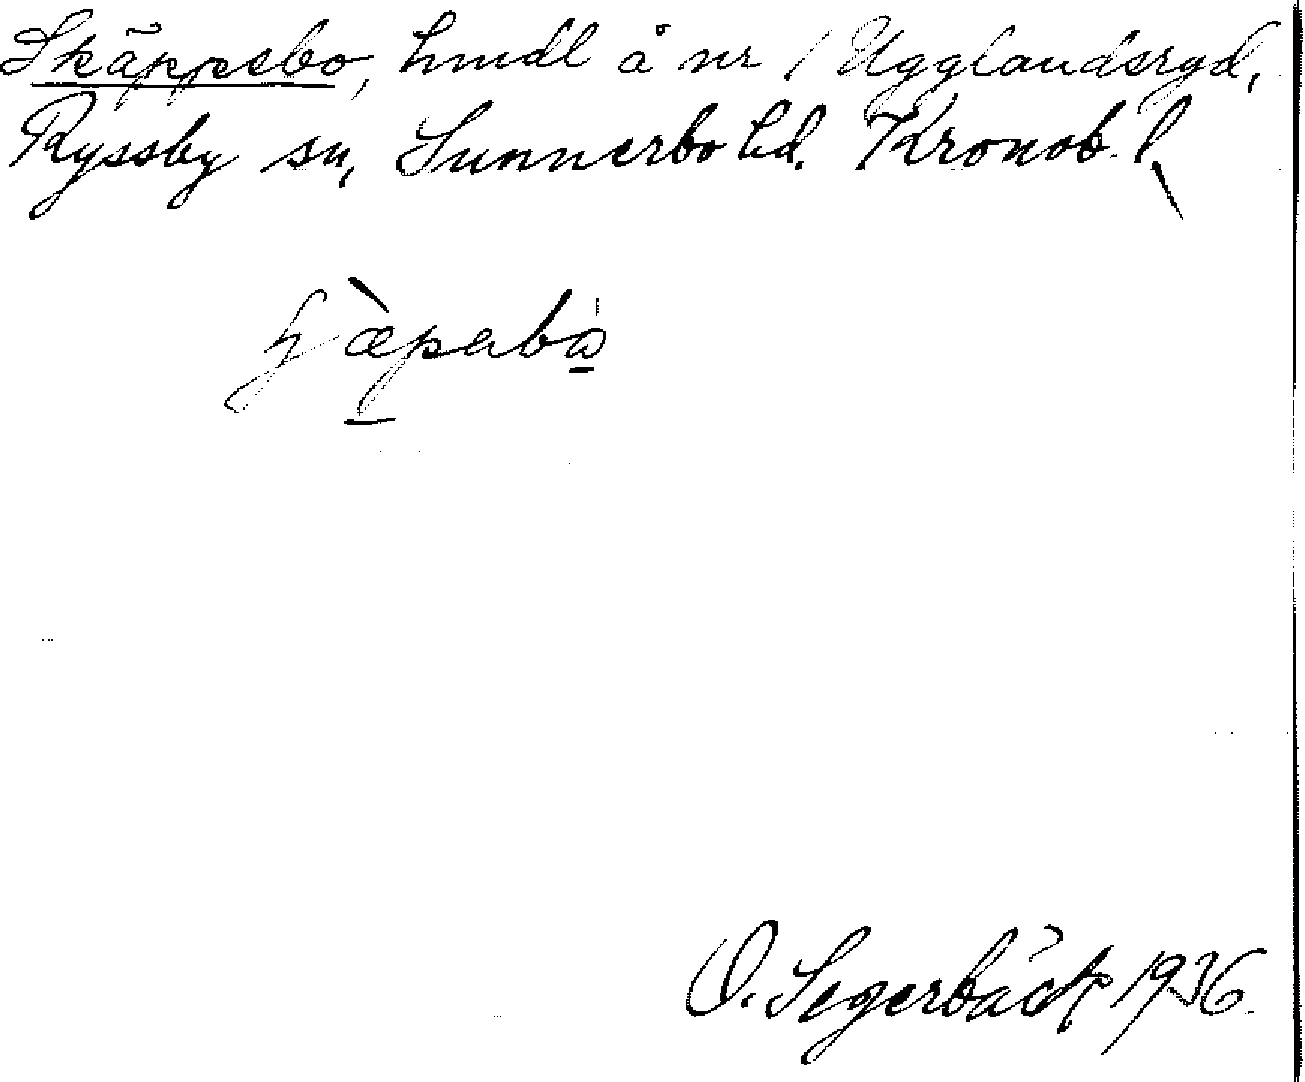 Skäppsebo, hmdl å nr 1 Ugglandsryd,
Ryssby sn, Sunnerbo hd. Kronob. l.
O. Segerbäck 1936.